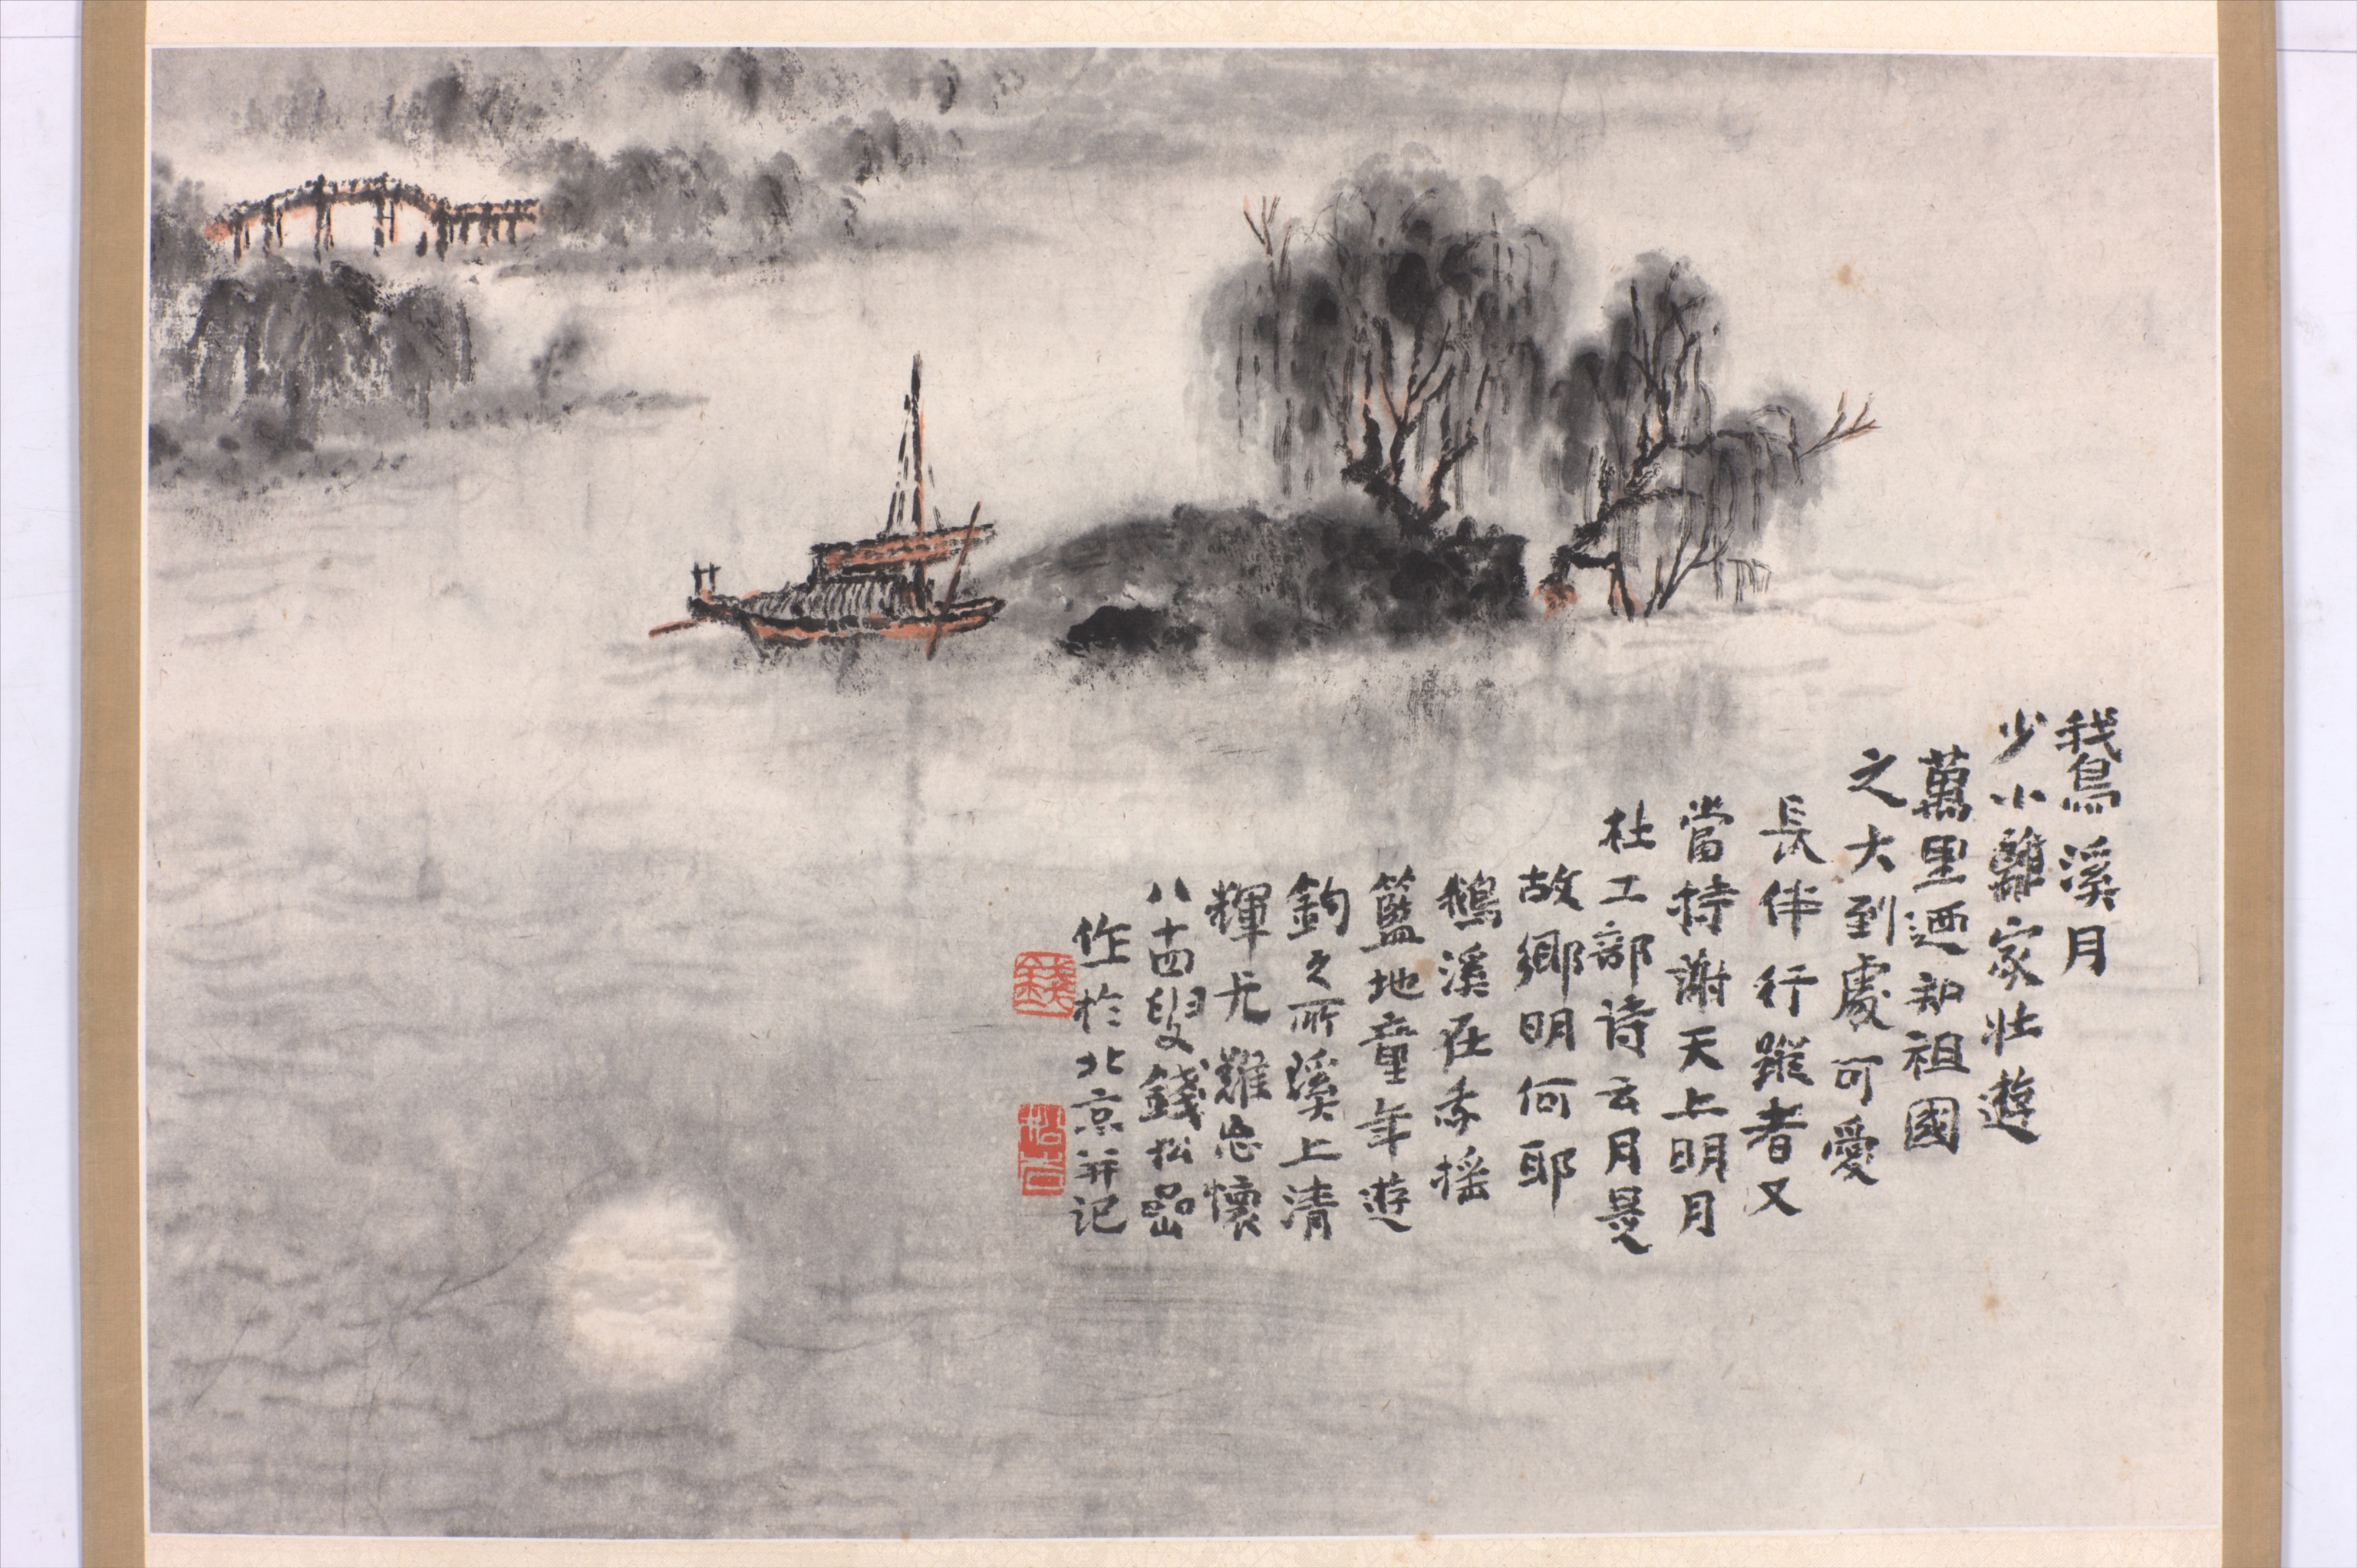 䳗溪月
少小離家壯遊
萬里迺知祖國
之大到處可愛
長伴行蹤者又
當特謝天上明月
杜工部诗云月是
故鄉明何耶
鵝溪在余搖
籃地童年遊
釣之所溪上清
輝尤難忘懷
八十四叟錢松嵒
作於北京并记
錢